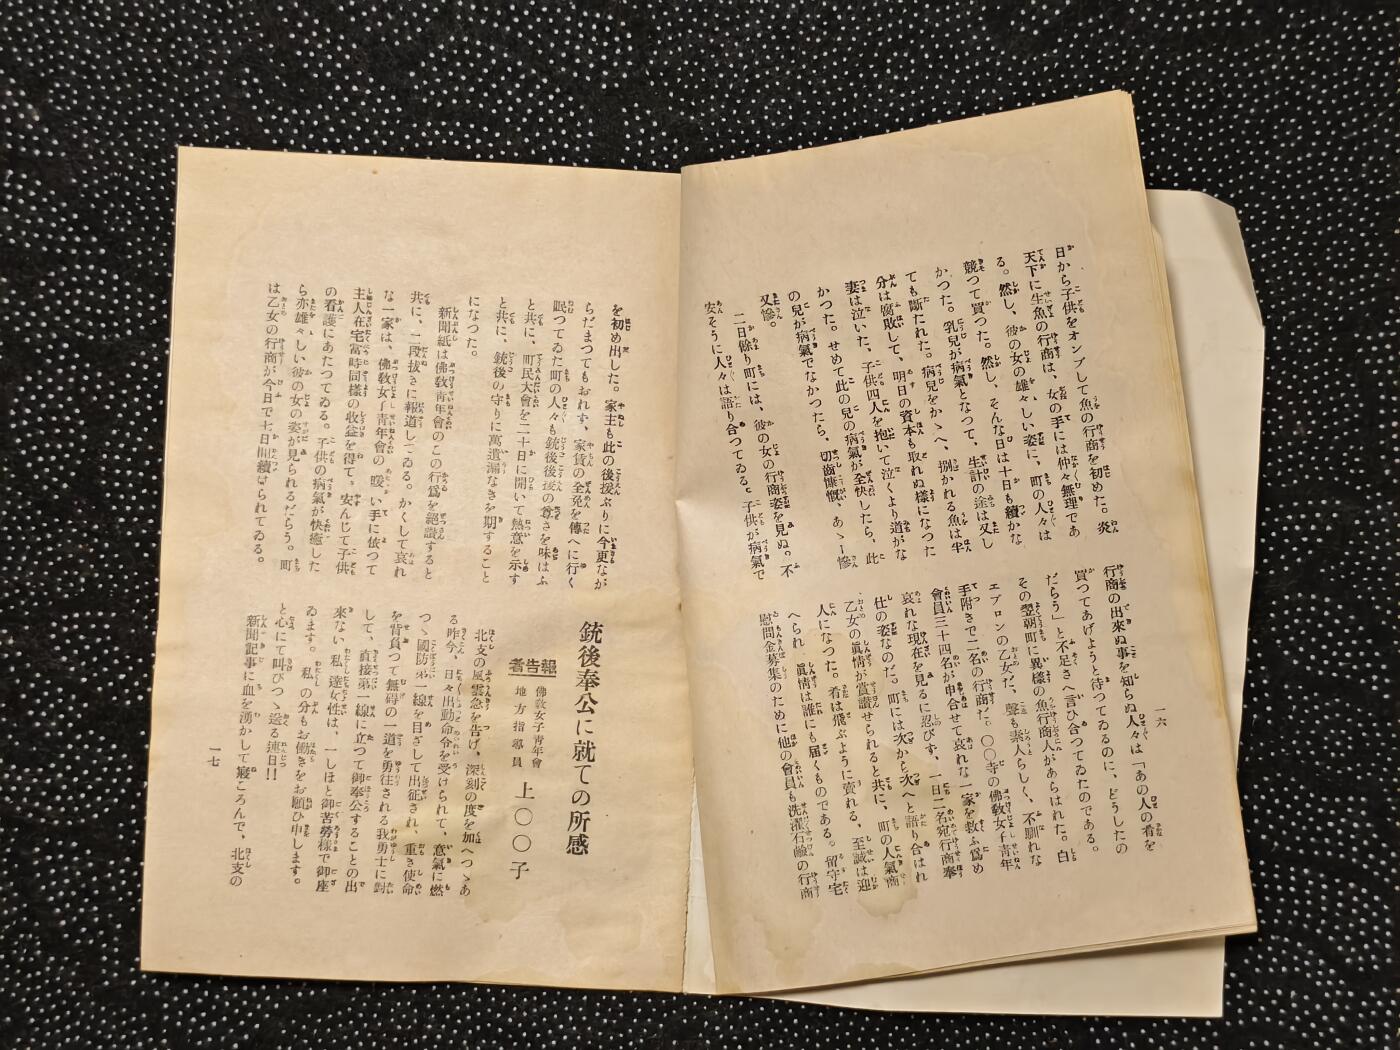 日から子供をオンブして魚の行商を初めた。炎
天下に生魚の行商は、女の手には仲々無理であ
る。然し、彼の女の雄々しい姿に、町の人々は
競つて買つた。然し、そんな日は十日も續かな
かつた。乳兒が病氣となつて、生計の途は又し
ても斷たれた。病兒をかゝへ、捌かれる魚は半
分は腐敗して、明日の資本も取れぬ樣になつた
妻は泣いた、子供四人を抱いて泣くより道がな
かつた。せめて此の兒の病氣が全快したら、此
の兒が病氣でなかつたら、切齒慷慨、あゝー慘
又慘。
二日餘り町には、彼の女の行商姿を見ぬ。不
安そうに人々は語り合つてゐる。子供が病氣で
行商の出來ぬ事を知らぬ人々は「あの人の肴を
買つてあげようと待つてゐるのに、どうしたの
だらう」と不足さへ言ひ合つてゐたのである。
その翌朝町に異樣の魚行商人があらはれた。白
エプロンの乙女だ、聲も素人らしく、不馴れな
手附きで二名の行商だ。〇〇寺の佛敎女子青年
會員三十四名が申合せて哀れな一家を救ふ爲め
哀れな現在を見るに忍びず、一日二名宛行商奉
仕の姿なのだ。町には次から次へと語り合はれ
乙女の眞情が賞讃せられると共に、町の人氣商
人になつた。肴は飛ぶように賣れる、至誠は迎
へられ、眞情は誰にも届くものである。留守宅
慰問金募集のために他の會員も洗濯石鹼の行商
一六
を初め出した。家主も此の後援ぶりに今更なが
らだまつてもおれず、家賃の全免を傳へに行く
眠つてゐた町の人々も銃後後援の尊さを味はふ
と共に、町民大會を二十日に開いて熱意を示す
と共に、銃後の守りに萬遺漏なきを期すること
になつた。
新聞紙は佛敎青年會のこの行爲を絕讃すると
共に、二段拔きに報道してゐる。かくして哀れ
な一家は、佛敎女子青年會の暖い手に依つて
主人在宅當時同樣の收益を得て、安んじて子供
の看護にあたつてゐる。子供の病氣が快癒した
ら亦雄々しい彼の女の姿が見られるだらう。町
は乙女の行商が今日で七日間續けられてゐる。
銃後奉公に就ての所感
報告者
佛敎女子青年會
地方指導員
上〇〇子
北支の風雲急を告げ、深刻の度を加へつゝあ
る昨今、日々出動命令を受けられて、意氣に燃
つゝ國防第一線を目ざして出征され、重き使命
を背負つて無碍の一道を勇往される我勇士に對
して、直接第一線に立つて御奉公することの出
來ない、私達女性は、一しほと御苦勞樣で御座
ゐます。私の分もお働きをお願ひ申します。
と心にて叫びつゝ送る連日!!
新聞記事に血を湧かして寢ころんで、北支の
一七